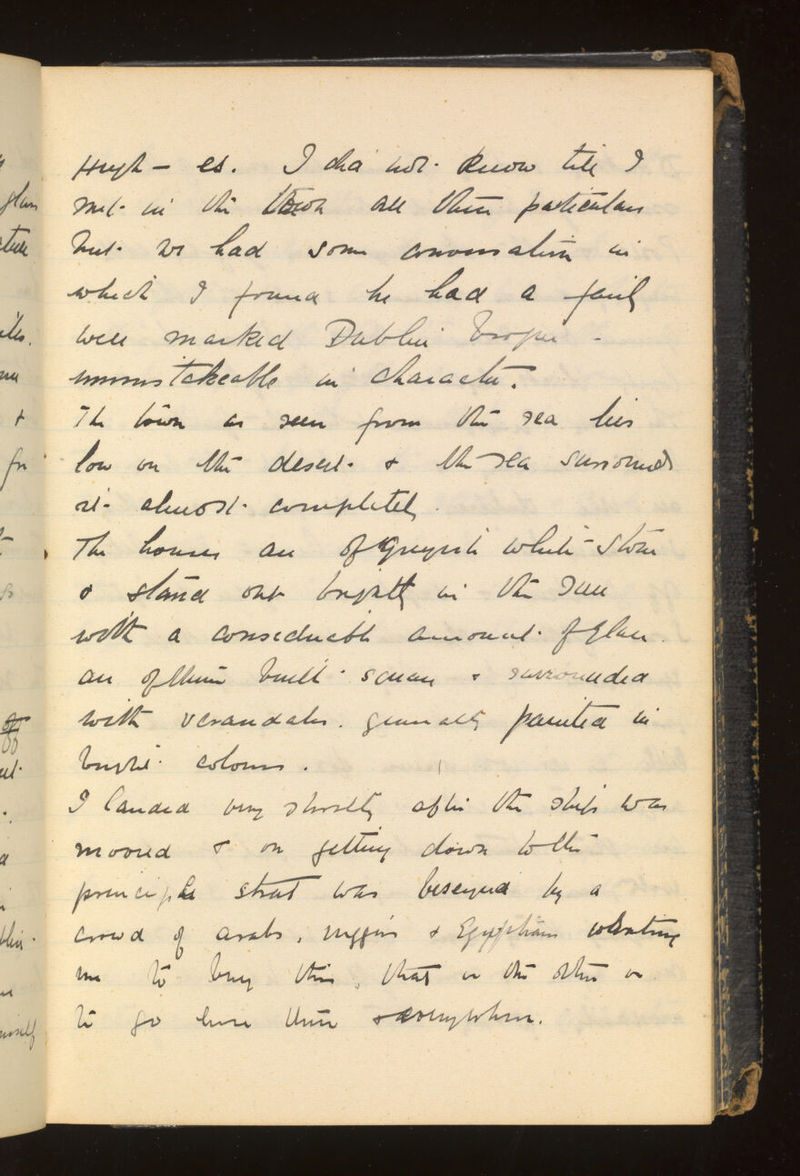 Hugh - es. I did not know till I
met in the town all these particulars
but we had some conversation in
which I found he had a fairly
well marked Dublin brogue -
unmistakeable in character.
The town as seen from the sea lies
low on the desert & the sea surrounds
it almost completely.
The houses are of greyish white stone
& stand out brightly in the sun
with a considerable amount of glare.
all of them built square & surrounded
with verandahs. generally painted in
bright colours.
I landed very shortly after the ship was
moored & on getting down to the
principle street was beseiged by a
crowd of arabs, niggers & Egyptians wanting
me to buy this, that or the other or
to go here there & everywhere.